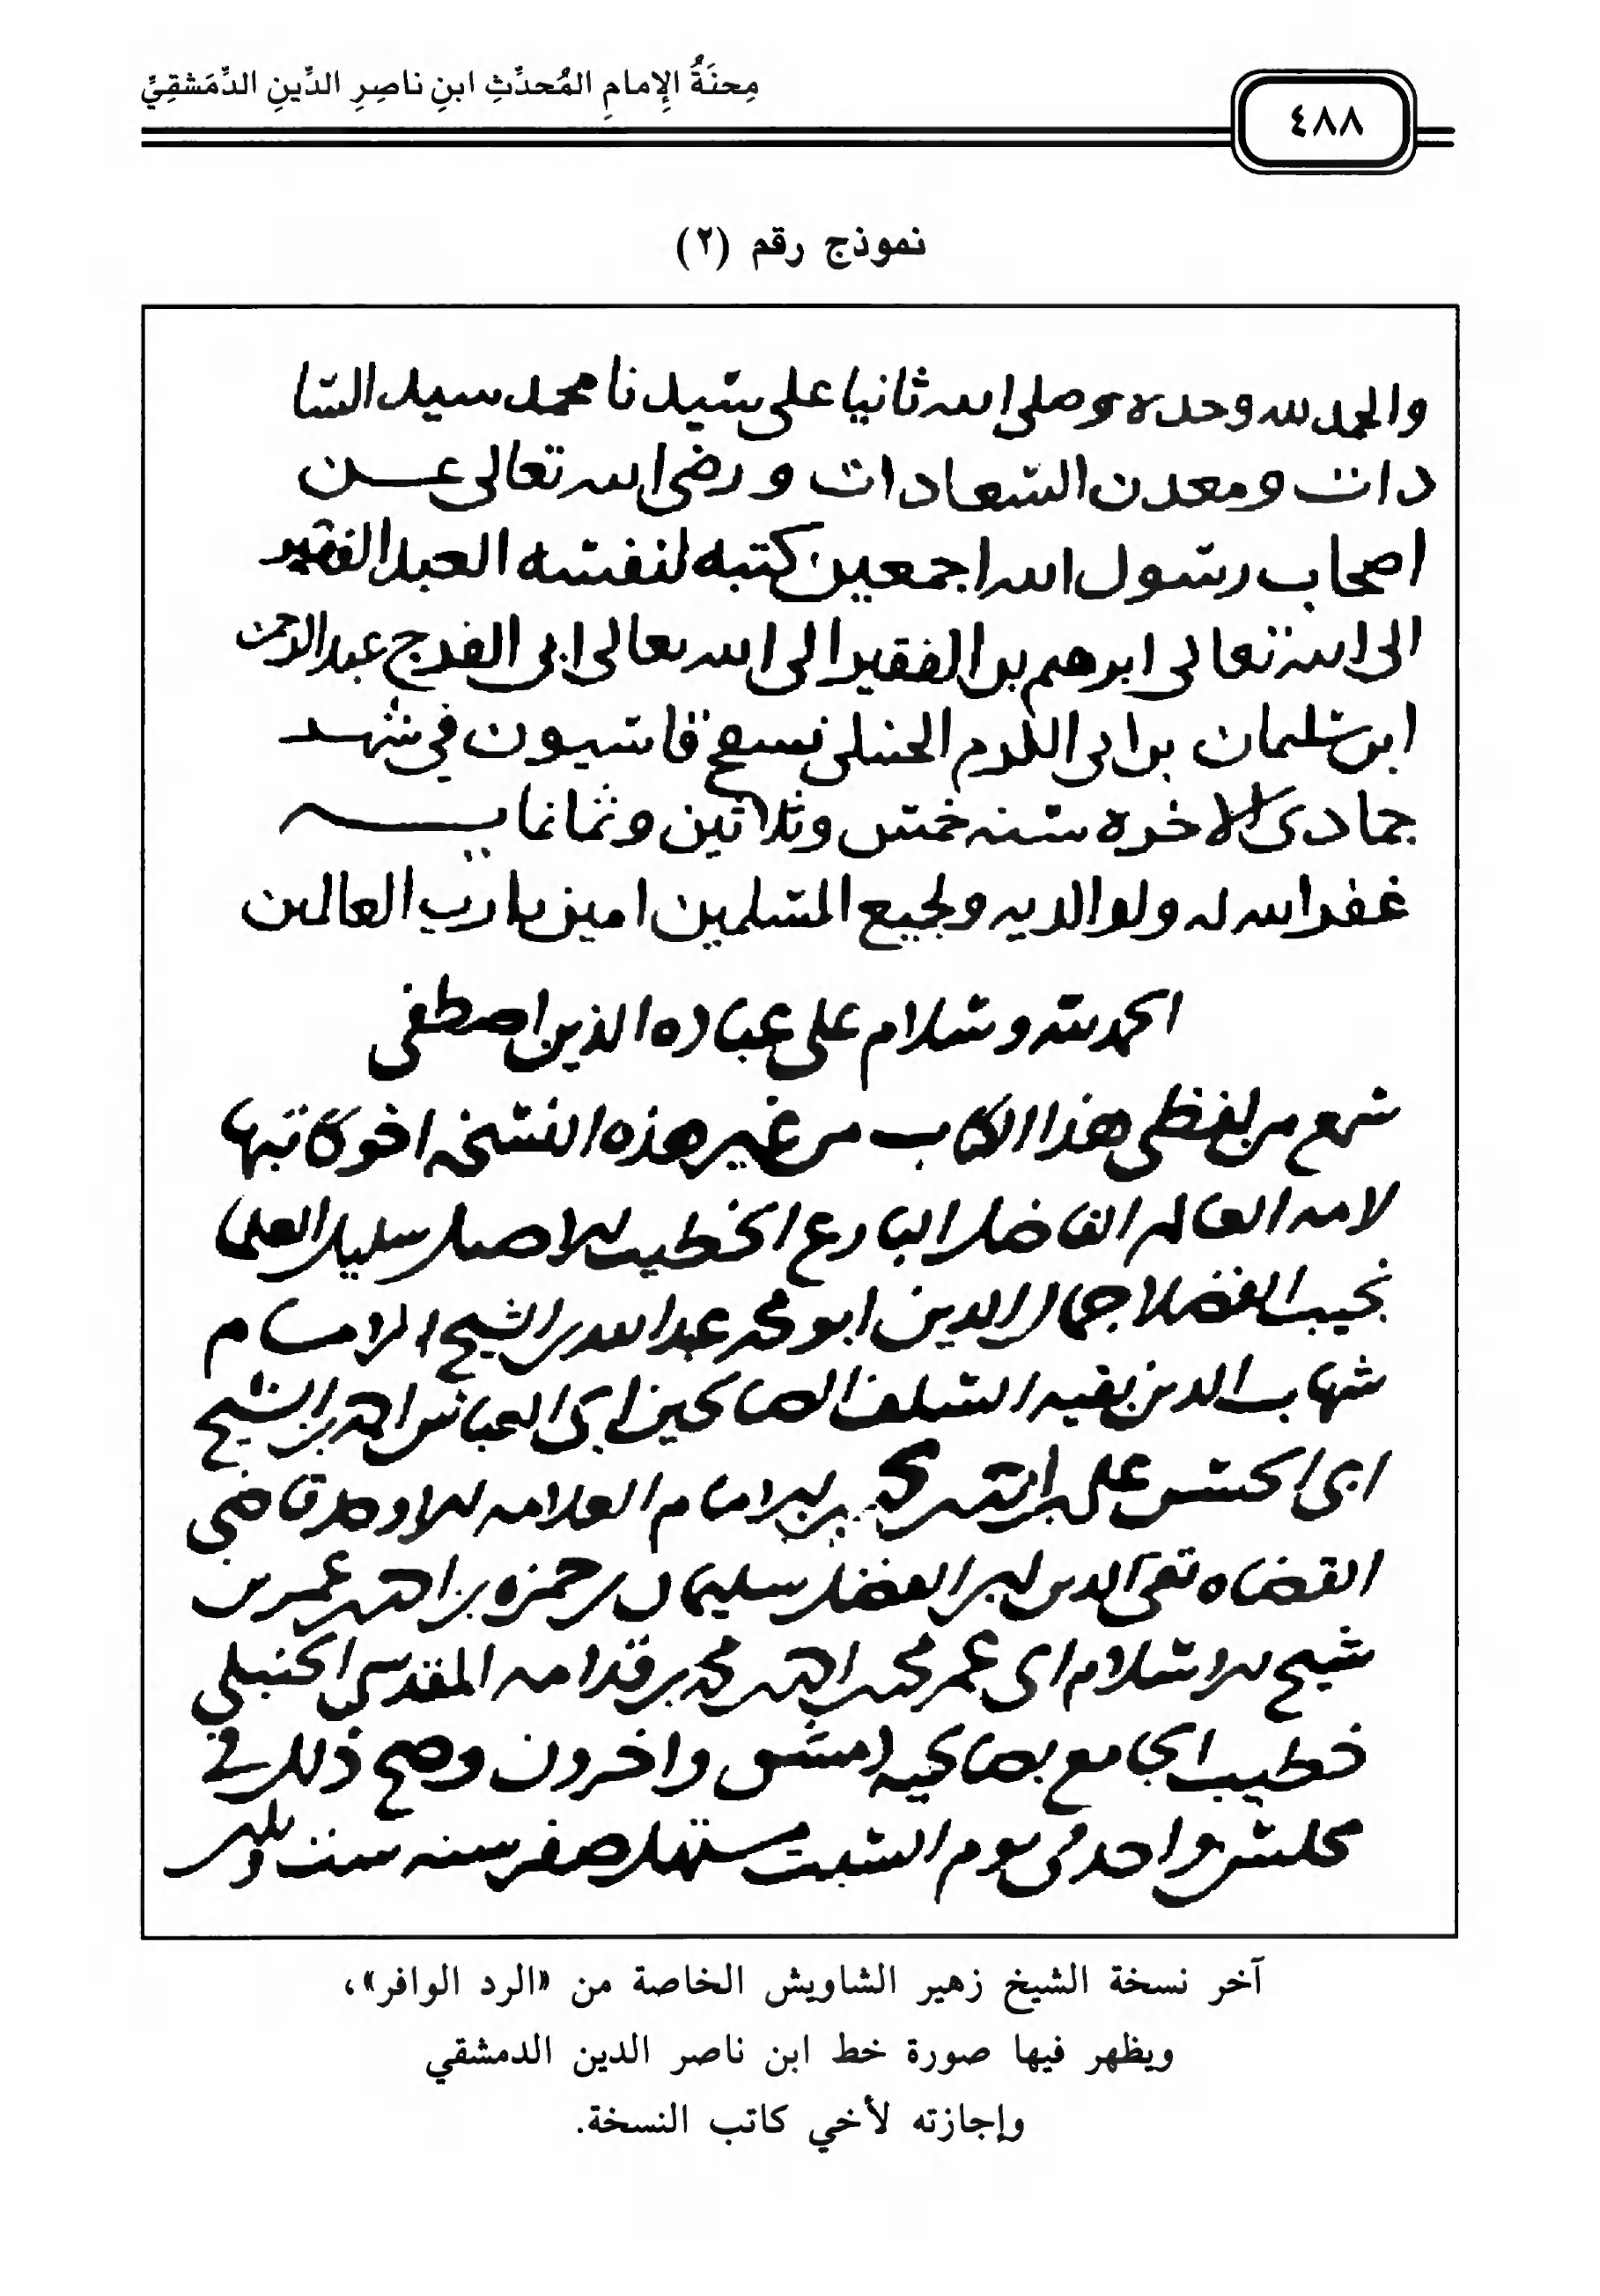 مِحنَةُ الإِمامِ المُحدِّثِ ابنِ ناصِرِ الدِّينِ الدِّمَشقِيِّ
٤٨٨
نموذج رقم (٢)
والحمد لله وحده وصلى الله ثانيا على سيدنا محمد سيد السا
دات ومعدن السعادات ورضى الله تعالى عن
اصحاب رسول الله اجمعين كتبه لنفسه العبد الفقير
الى الله تعالى ابرهيم بن الفقير الى الله تعالى ابى الفرج عبد الرحمن
ابن سليمان بن ابى الكرم الحنبلى بسفح قاسيون في شهر
جمادى الاخره سنه خمس وثلاثين وثمانمايه
غفر الله له ولوالديه ولجميع المسلمين امين يا رب العالمين
الحمد لله وسلام على عباده الذين اصطفى
سمع من لفظى هذا الكتاب من غير هذه النسخه اخو كاتبها
لامه العالم الفاضل البارع الخطيب الاصيل سليل العلما
نجيب الفضلا جمال الدين ابو محمد عبد الله بن الشيخ الامام
شهاب الدين بقيه السلف الصالحين ابى العباس احمد بن الشيخ
ابى الحسن على بن الامام العلامه الاوحد قاضى
القضاه تقى الدين ابى الفضل سليمان بن حمزه بن احمد بن عمر بن
شيخ الاسلام ابى عمر محمد بن احمد بن محمد بن قدامه المقدسى الحنبلى
خطيب الجامع بصالحيه دمشق واخرون وصح ذلك في
مجلس واحد في يوم السبت مستهل صفر سنه ست
آخر نسخة الشيخ زهير الشاويش الخاصة من «الرد الوافر»،
ويظهر فيها صورة خط ابن ناصر الدين الدمشقي
وإجازته لأخي كاتب النسخة.